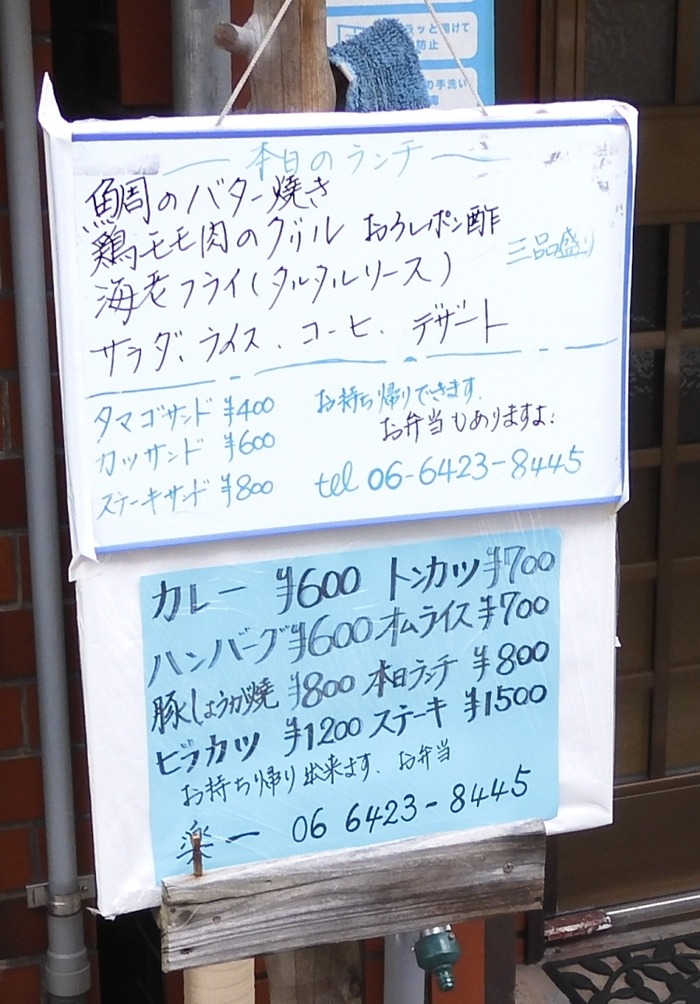 ラッと開けて
防止
の手洗い
本日のランチ
鯛のバター焼き
鶏モモ肉のグリル おろしポン酢
海老フライ(タルタルソース)
三品盛り
サラダ、ライス、コーヒ、デザート
タマゴサンド ¥400
カツサンド ¥600
ステーキサンド ¥800
お持ち帰りできます.
お弁当もありますよ!
tel 06-6423-8445
カレー ¥600 トンカツ ¥700
ハンバーグ ¥600 オムライス ¥700
豚しょうが焼 ¥800 本日ランチ ¥800
ビフカツ ¥1200 ステーキ ¥1500
お持ち帰り出来ます、お弁当
楽一 06 6423-8445